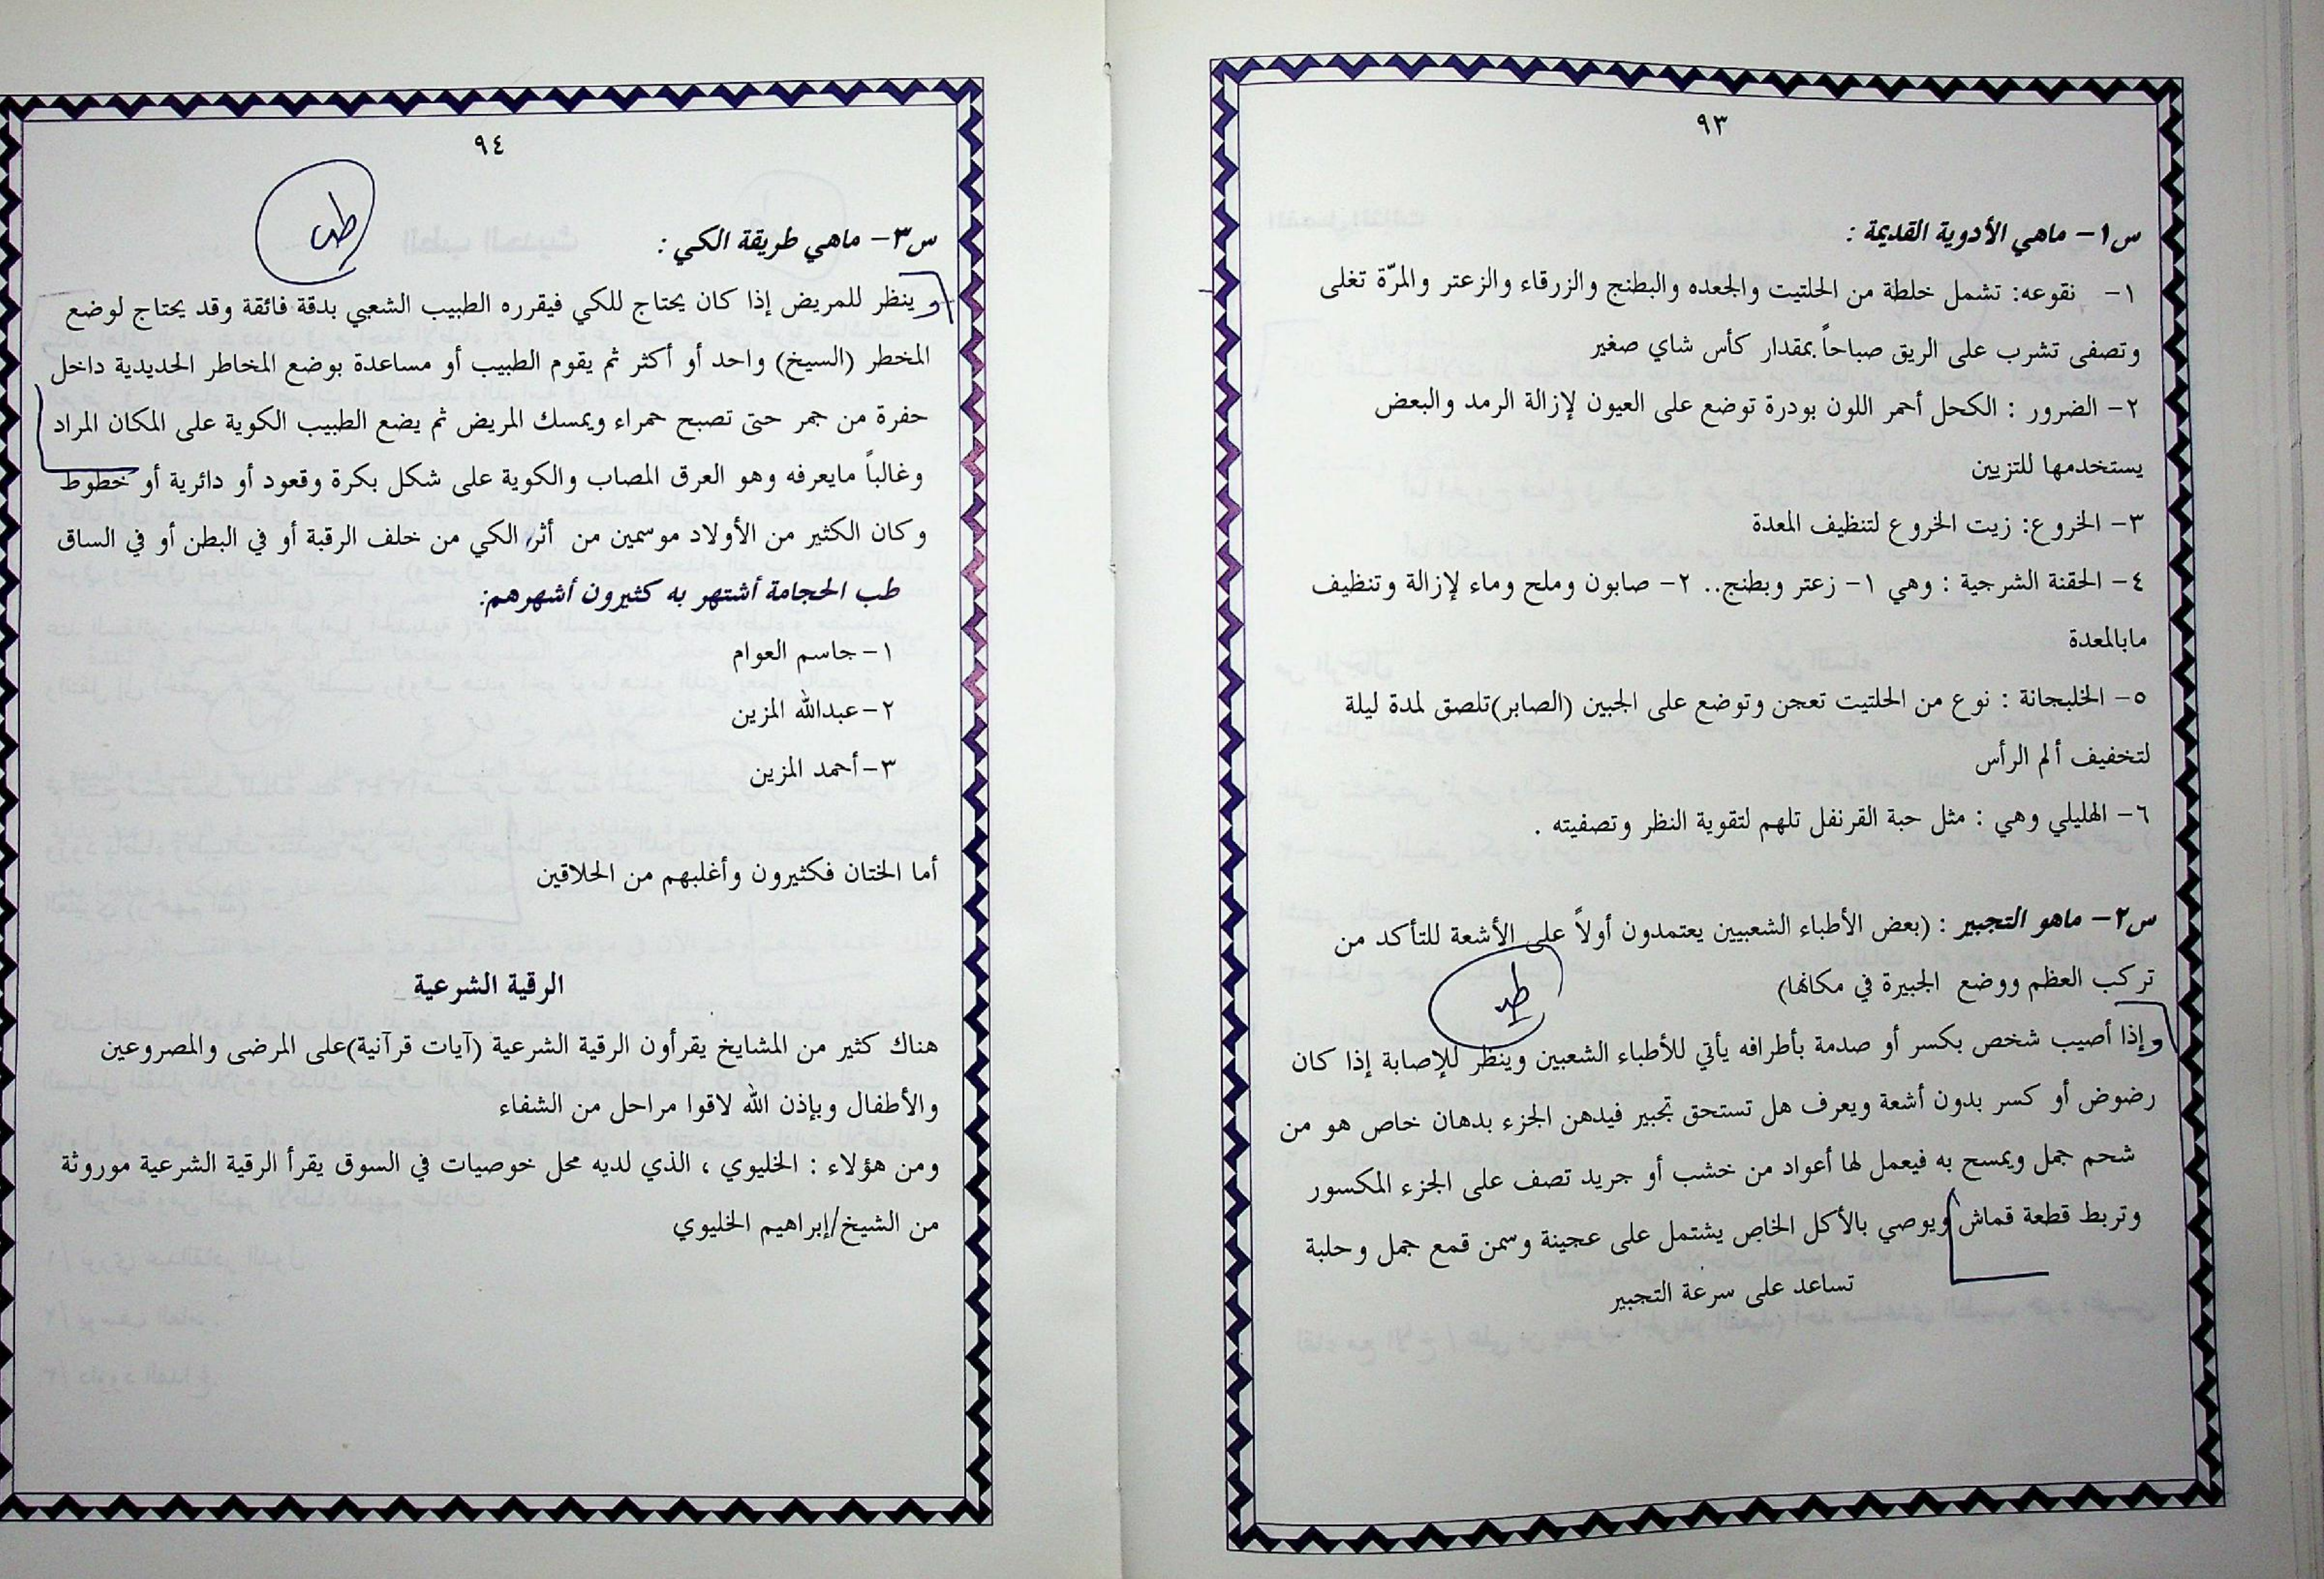 ٩٣
س١- ماهي الأدوية القديمة :
١- نقوعه: تشمل خلطة من الحلتيت والجعده والبطنج والزرقاء والزعتر والمرّة تغلى
وتصفى تشرب على الريق صباحاً بمقدار كأس شاي صغير
٢- الضرور : الكحل أحمر اللون بودرة توضع على العيون لإزالة الرمد والبعض
يستخدمها للتزيين
٣- الخروع: زيت الخروع لتنظيف المعدة
٤- الحقنة الشرجية : وهي ١- زعتر وبطنج.. ٢- صابون وملح وماء لإزالة وتنظيف
مابالمعدة
٥- الخلبجانة : نوع من الحلتيت تعجن وتوضع على الجبين (الصابر)تلصق لمدة ليلة
لتخفيف ألم الرأس
٦- الهليلي وهي : مثل حبة القرنفل تلهم لتقوية النظر وتصفيته .
س٢- ماهو التجبير : (بعض الأطباء الشعبيين يعتمدون أولاً على الأشعة للتأكد من
تركب العظم ووضع الجبيرة في مكانها)
وإذا أصيب شخص بكسر أو صدمة بأطرافه يأتي للأطباء الشعبين وينظر للإصابة إذا كان
رضوض أو كسر بدون أشعة ويعرف هل تستحق تجبير فيدهن الجزء بدهان خاص هو من
شحم جمل ويمسح به فيعمل لها أعواد من خشب أو جريد تصف على الجزء المكسور
وتربط قطعة قماش ويوصي بالأكل الخاص يشتمل على عجينة وسمن قمع جمل وحلبة
تساعد على سرعة التجبير
٩٤
س٣- ماهي طريقة الكي :
وينظر للمريض إذا كان يحتاج للكي فيقرره الطبيب الشعبي بدقة فائقة وقد يحتاج لوضع
المخطر (السيخ) واحد أو أكثر ثم يقوم الطبيب أو مساعدة بوضع المخاطر الحديدية داخل
حفرة من جمر حتى تصبح حمراء ويمسك المريض ثم يضع الطبيب الكوية على المكان المراد
وغالباً مايعرفه وهو العرق المصاب والكوية على شكل بكرة وقعود أو دائرية أو خطوط
وكان الكثير من الأولاد موسمين من أثر الكي من خلف الرقبة أو في البطن أو في الساق
طب الحجامة أشتهر به كثيرون أشهرهم:
١-جاسم العوام
٢-عبدالله المزين
٣-أحمد المزين
أما الختان فكثيرون وأغلبهم من الحلاقين
الرقية الشرعية
هناك كثير من المشايخ يقرأون الرقية الشرعية (آيات قرآنية)على المرضى والمصروعين
والأطفال وبإذن الله لاقوا مراحل من الشفاء
ومن هؤلاء : الخليوي ، الذي لديه محل خوصيات في السوق يقرأ الرقية الشرعية موروثة
من الشيخ/إبراهيم الخليوي